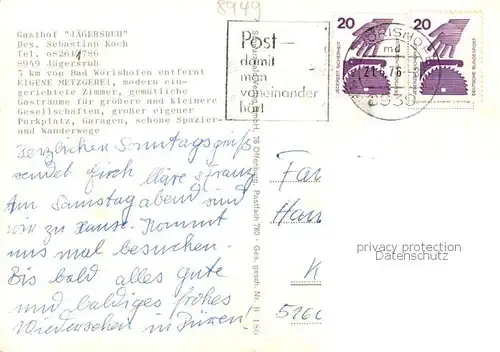 8949
Gasthof "JÄGERSRUH"
Bes. Sebastian Koch
Tel. 08261/786
8949 Jägersruh
5 km vor Bad Wörishofen entfernt
EIGENE METZGEREI, modern ein-
gerichtete Zimmer, gemütliche
Gasträume für größere und kleinere
Gesellschaften, großer eigener
Parkplatz, Garagen, schöne Spazier-
und Wanderwege
Post -
damit
man
voneinander
hört
20
20
JEDERZEIT SICHERHEIT
DEUTSCHE BUNDESPOST
md
21.6.76
8939
Herzlichen Sonntagsgruß
sendet Euch Kläre & Franz
Am Samstag abend sind
wir zu Hause. Kommt
uns mal besuchen.
Bis bald alles gute
und baldiges frohes
Wiedersehen in Düren!
GmbH, 76 Offenburg, Postfach 780 · Ges. gesch. Nr. B 186
Fam
Han
K
5160
privacy protection
Datenschutz